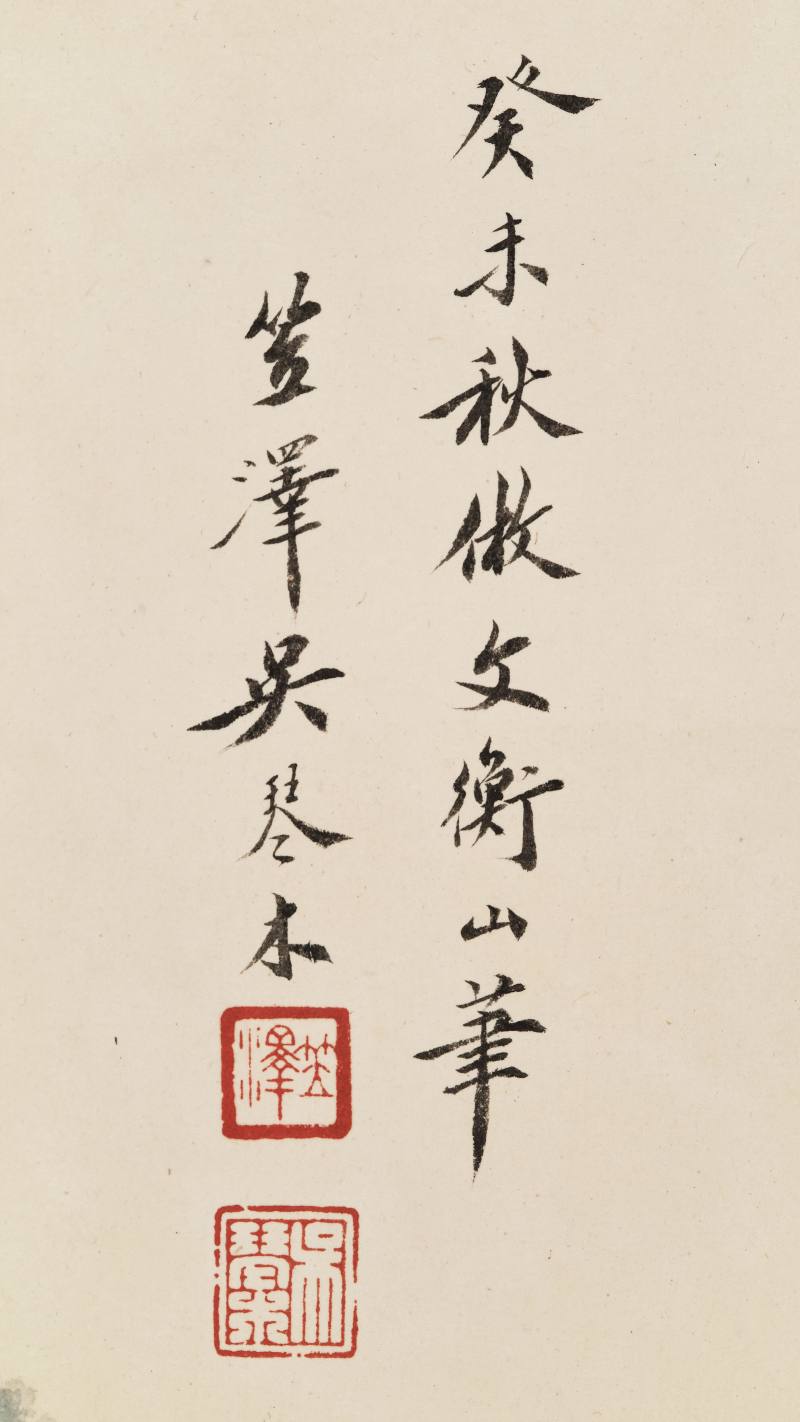 癸未秋倣文衡山筆
笠澤吳琴木
笠澤
吳琴木